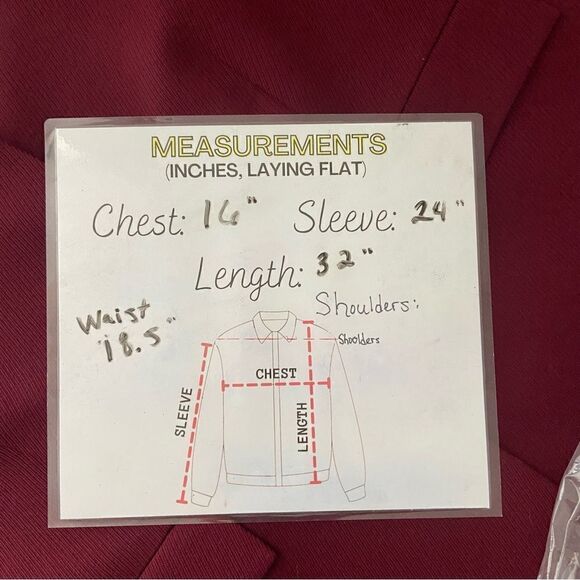 MEASUREMENTS
(INCHES, LAYING FLAT)
Chest: 16" Sleeve: 24"
Length: 32"
Shoulders:
Waist
18.5"
Shoolders
CHEST
SLEEVE
LENGTH